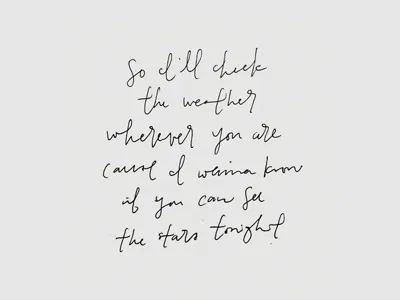 So I'll check
the weather
wherever you are
cause I wanna know
if you can see
the stars tonight